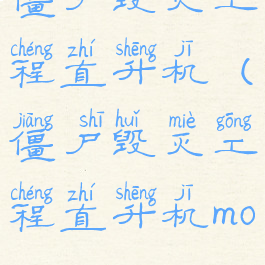 僵尸毁灭工
chéng zhí shēng jī
程直升机（
jiāng shī huǐ miè gōng
僵尸毁灭工
chéng zhí shēng jī
程直升机mo